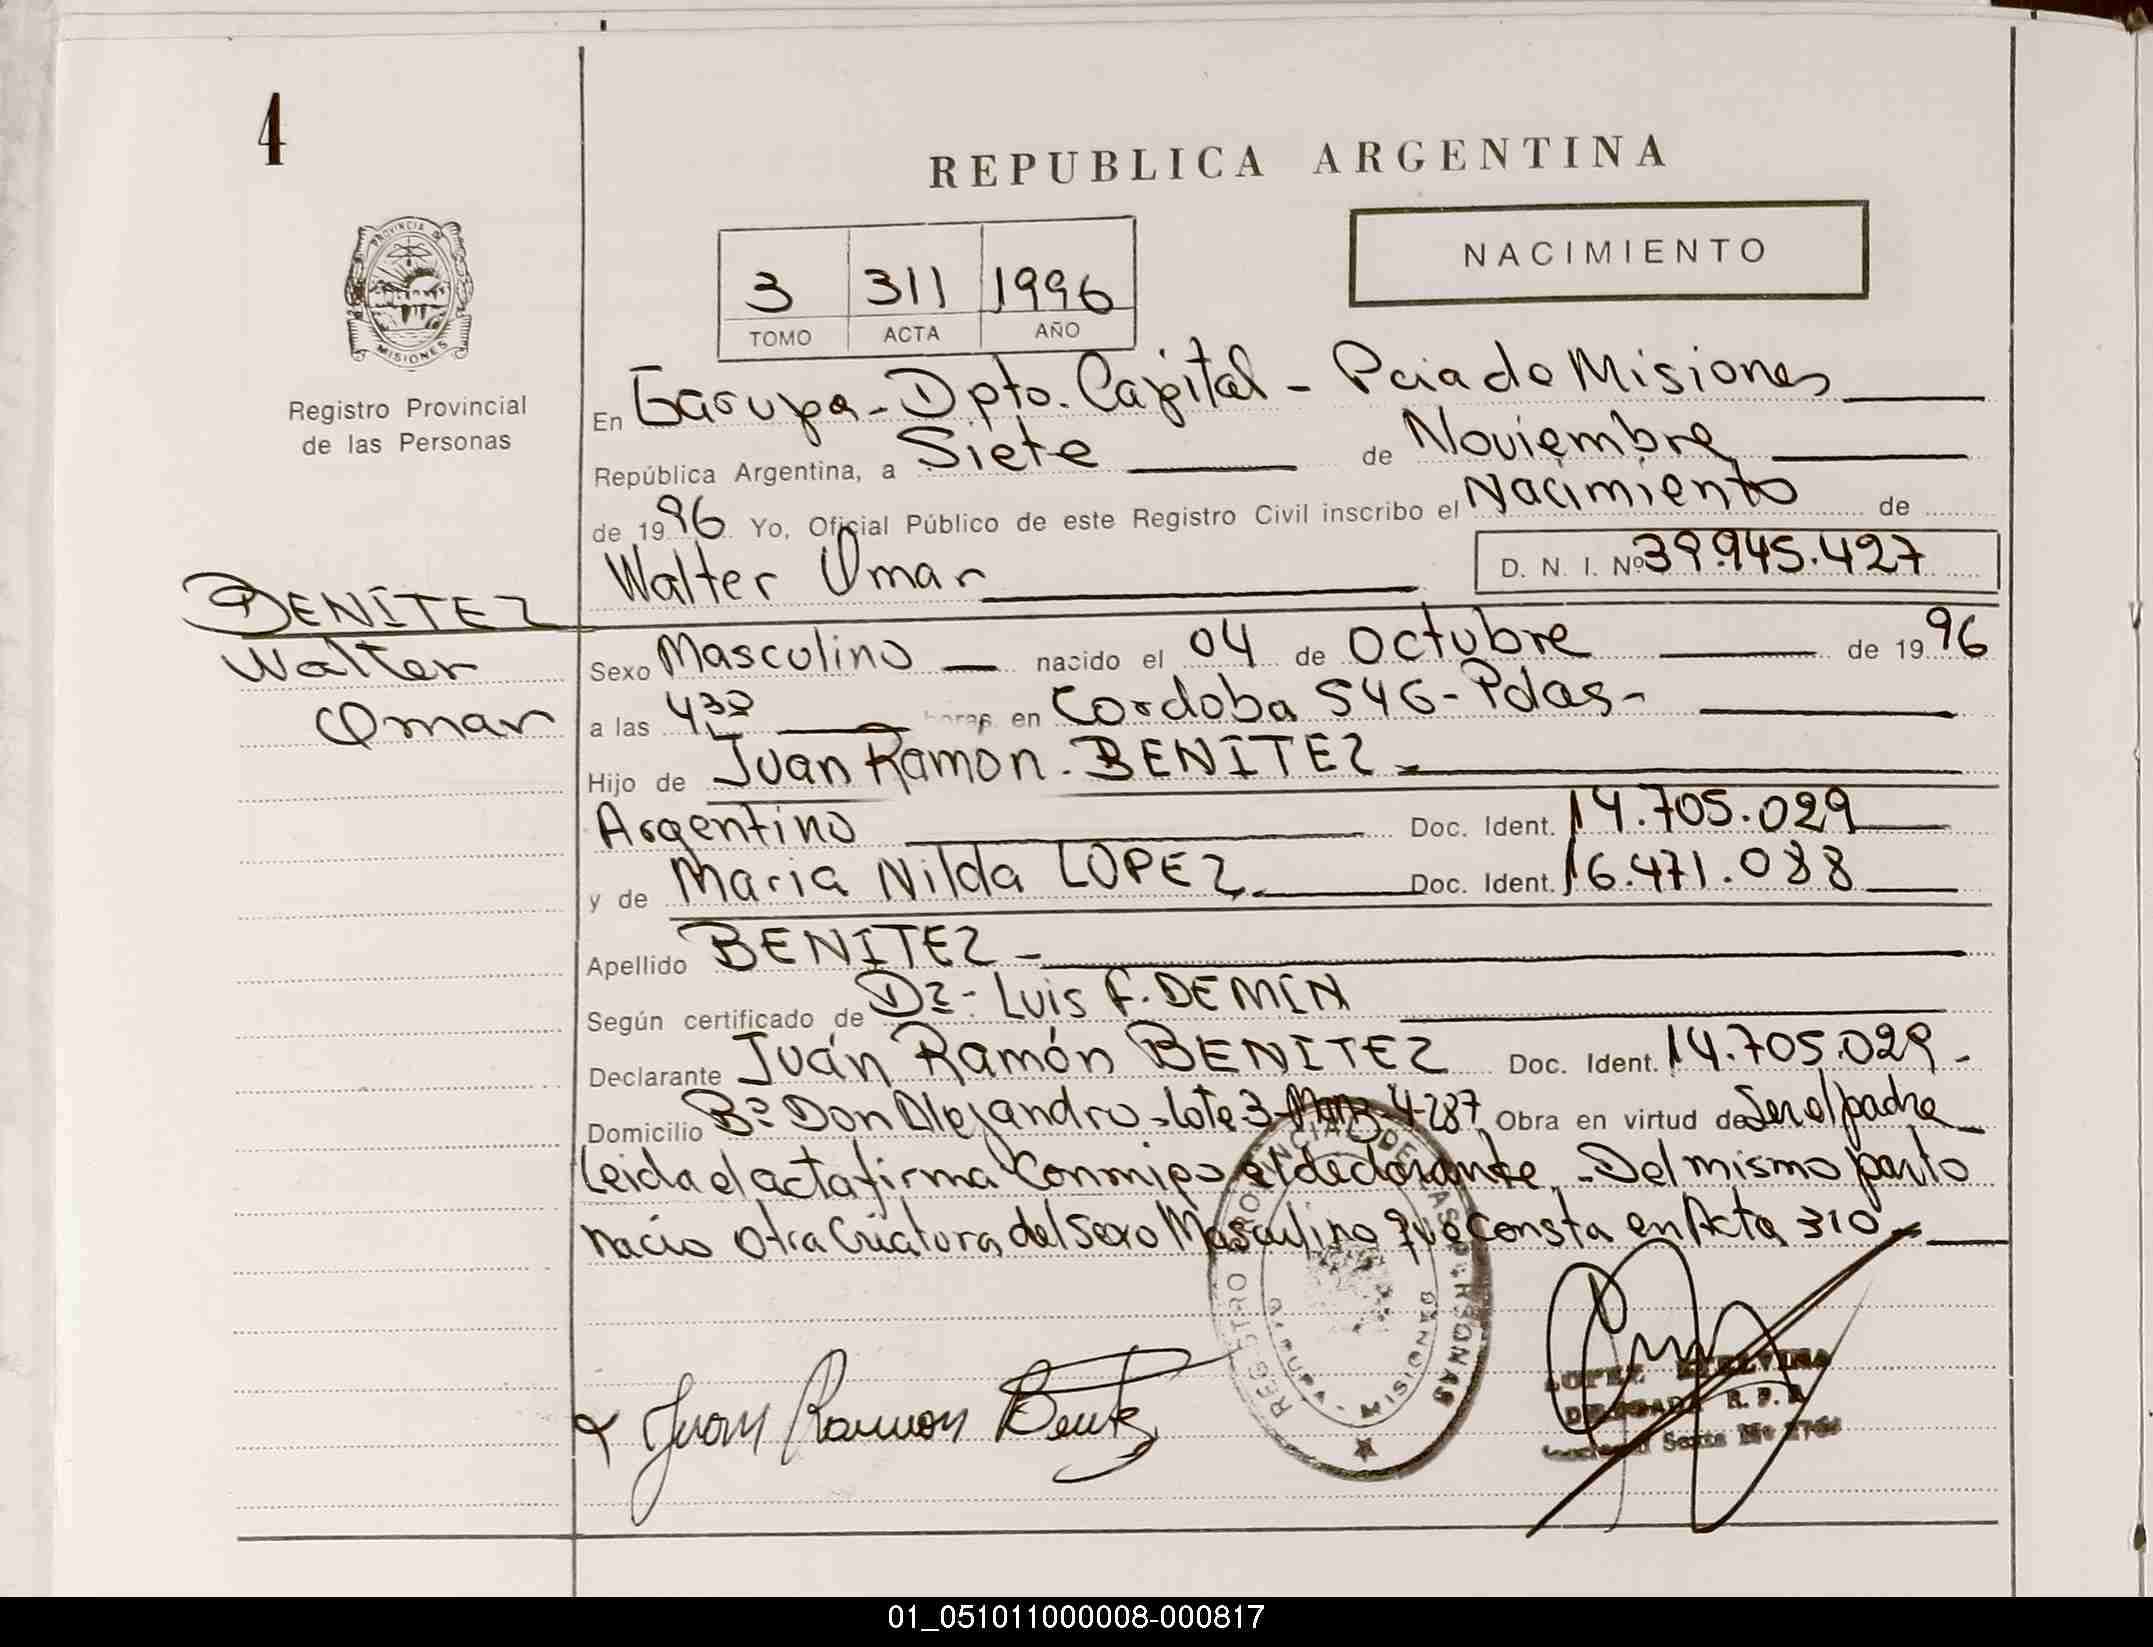 4
REPUBLICA ARGENTINA
NACIMIENTO
3 311 1996
TOMO ACTA AÑO
PROVINCIA DE
MISIONES
Registro Provincial
de las Personas
En Garupa - Dpto. Capital - Pcia de Misiones
República Argentina, a Siete de Noviembre
de 1996 Yo, Oficial Público de este Registro Civil inscribo el Nacimiento de
Walter Omar D. N. I. Nº 39.945.427
BENITEZ
Walter
Omar
Sexo Masculino nacido el 04 de Octubre de 1996
a las 4,30 horas en Cordoba 546 - Pdas -
Hijo de Juan Ramon BENITEZ
Argentino Doc. Ident. 14.705.029
y de Maria Nilda LOPEZ Doc. Ident. 16.471.088
Apellido BENITEZ
Según certificado de Dr. Luis F. DEMIN
Declarante Juán Ramón BENITEZ Doc. Ident. 14.705.029 -
Domicilio Bº Don Alejandro - lote 3 - Manz 4-287 Obra en virtud de Ser el padre
Leida el acta firma Conmigo el declarante. - Del mismo parto
nacio otra Criatura del Sexo Masculino que Consta en Acta 310
REGISTRO PROVINCIAL DE LAS PERSONAS
GARUPA - MISIONES
Juan Ramon Benitez
LOPEZ ETELVINA
DELEGADA R. P. P.
01_051011000008-000817